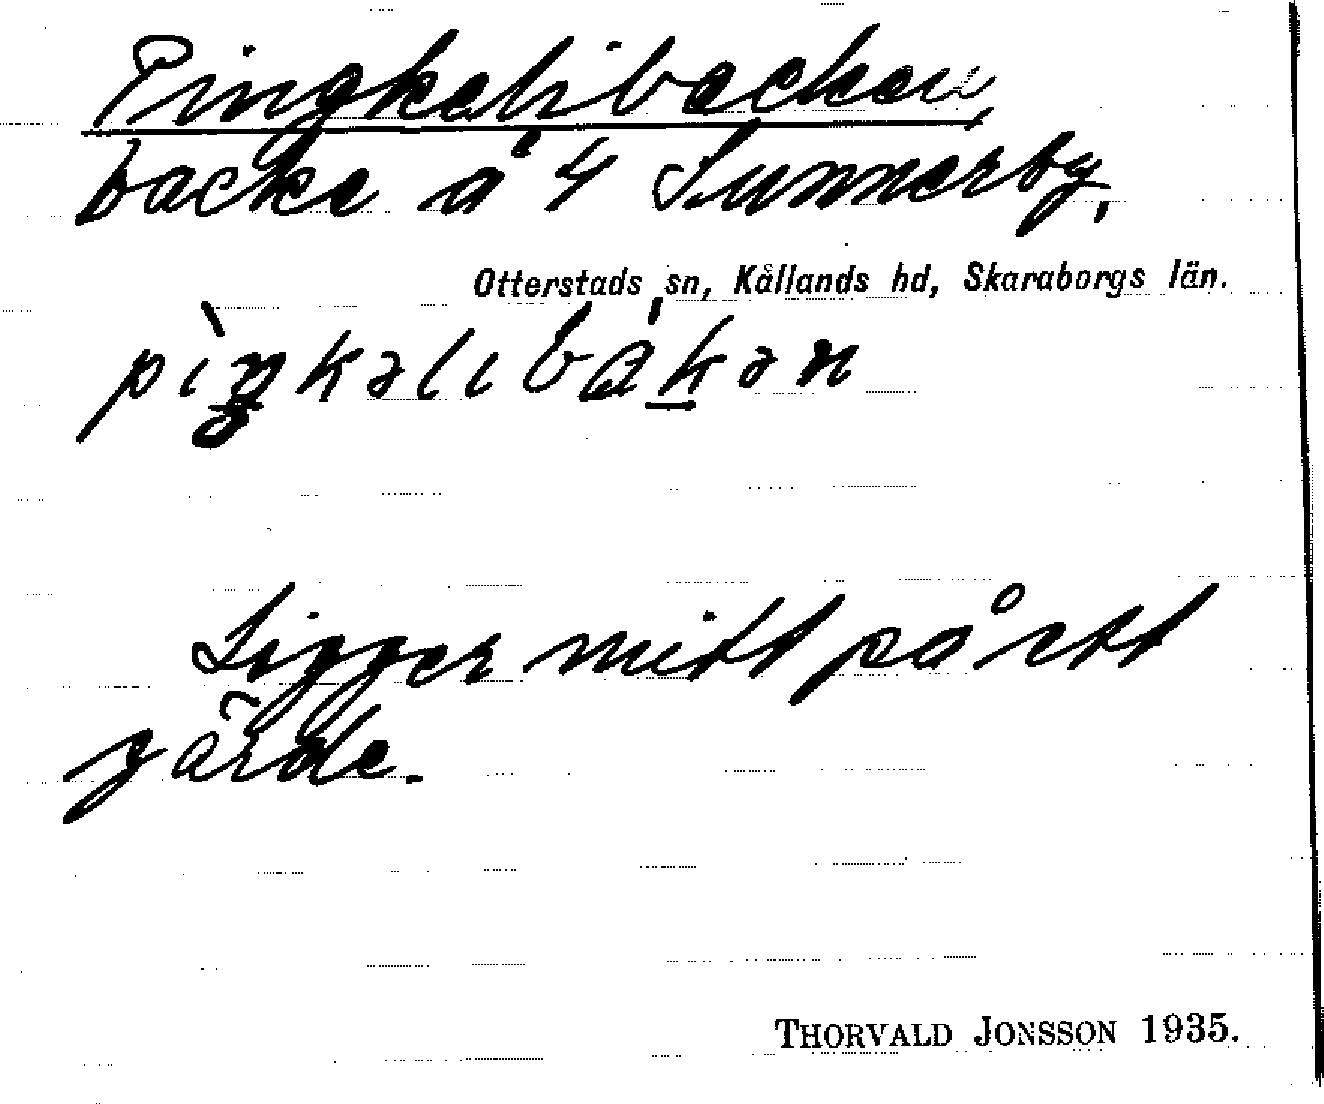 Pingkelibacken
backe å 4 Sunnerby,
Otterstads sn, Kållands hd, Skaraborgs län.
pìŋkəlıbákən
Ligger mitt på ett
gärde.
THORVALD JONSSON 1935.